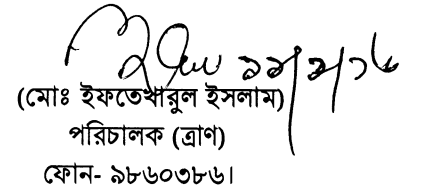 (মোঃ ইফতেখারুল ইসলাম)
পরিচালক (ত্রাণ)
ফোন- ৯৮৬০৩৮৬।